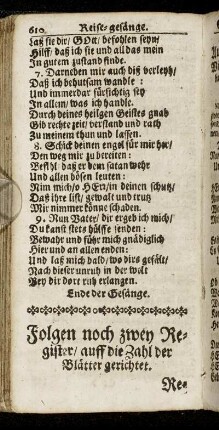 610 Reise-gesänge.
Laß sie dir/ GOtt/ befohlen seyn/
Hilff/ daß ich sie und all das mein
In gutem zustand finde.
7. Darneben mir auch diß verleyh/
Daß ich behutsam wandle:
Und immerdar fürsichtig sey
In allem/ was ich handle.
Durch deines heilgen Geistes gnad
Gib rechte zeit/ verstand und rath
Zu meinem thun und lassen.
8. Schick deinen engel für mir her/
Den weg mir zu bereiten:
Befihl/ daß er dem satan wehr
Und allen bösen leuten:
Nim mich/ o HErr/ in deinen schutz/
Daß ihre list/ gewalt und trutz
Mir nimmer könne schaden.
9. Nun Vater/ dir ergeb ich mich/
Du kanst stets hülffe senden:
Bewahr und führ mich gnädiglich
Hier und an allen enden:
Und laß mich bald/ wo dirs gefält/
Nach dieser unruh in der welt
Bey dir dort ruh erlangen.
Ende der Gesänge.
Folgen noch zwey Re-
gister/ auff die Zahl der
Blätter gerichtet.
Re-